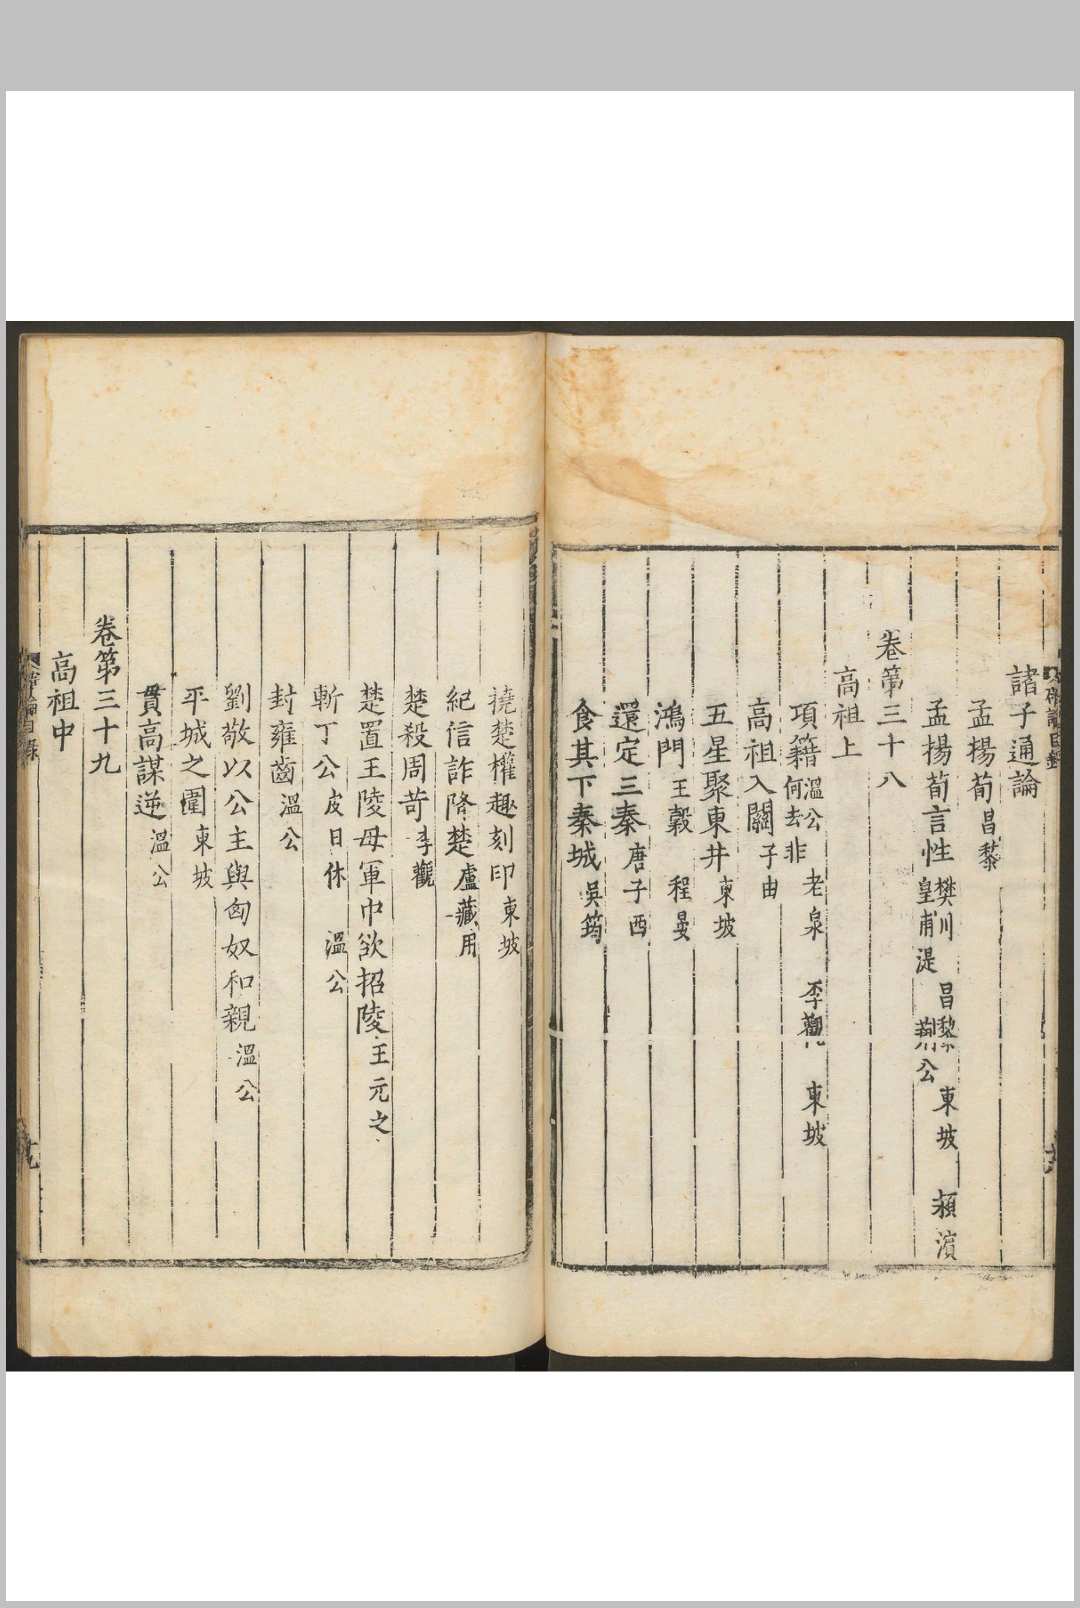 諸子通論
孟揚荀昌黎
孟揚荀言性樊川 昌黎 東坡 頴濱
皇甫湜 荆公
卷第三十八
高祖上
項籍溫公 老泉 李觀 東坡
何去非
高祖入關子由
五星聚東井東坡
鴻門王糓 程晏
還定三秦唐子西
食其下秦城吳筠
撓楚權趣刻印東坡
紀信詐降楚盧藏用
楚殺周苛李觀
楚置王陵母軍中欲招陵王元之
斬丁公皮日休 溫公
封雍齒溫公
劉敬以公主與匈奴和親溫公
平城之圍東坡
貫高謀逆溫公
卷第三十九
高祖中